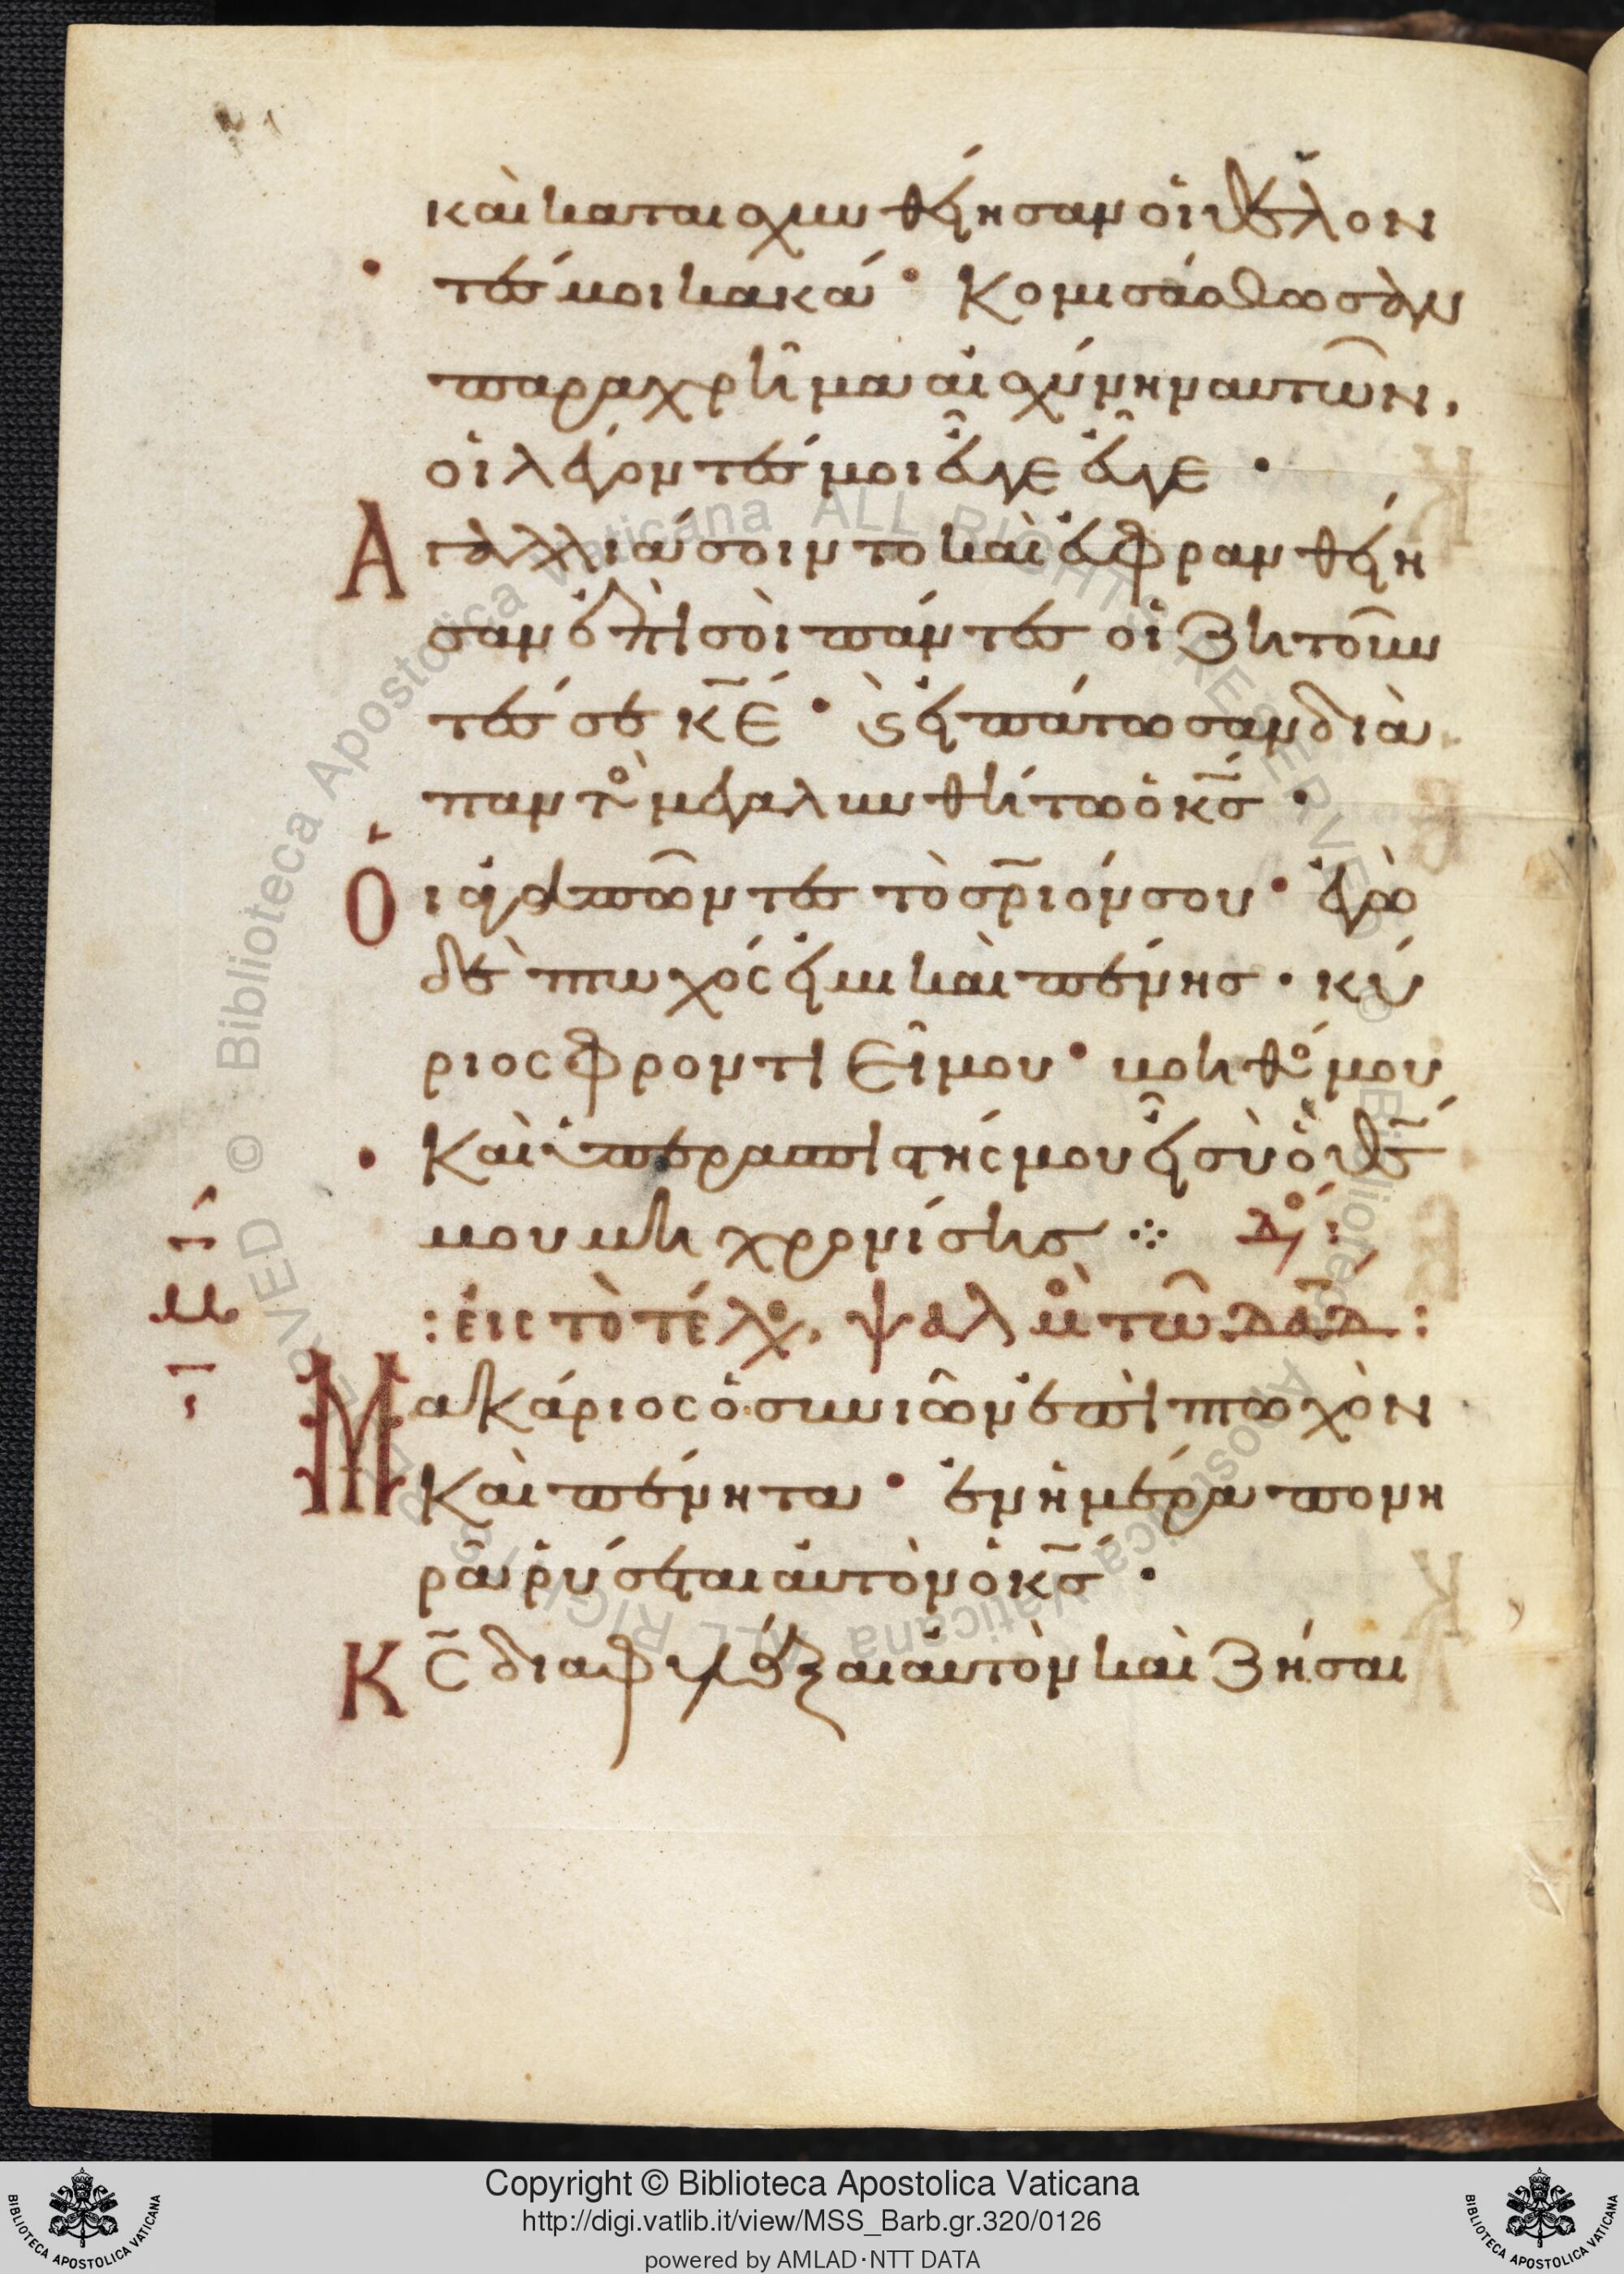 καὶ καταισχυνθείησαν οἱ θέλον
τές μοι κακά· Κομισάσθωσαν
παραχρῆμα αἰσχύνην αυτῶν,
οἱ λέγοντές μοι εὖγε εὖγε·
Αγαλλιάσοιντο καὶ εὐφρανθείη
σαν ἐπὶ σοὶ πάντες οἱ ζητοῦν
τές σε κ̅ε̅· ϗ εἰπάτωσαν διὰ
παντὸς μεγαλυνθήτω ὁ κ̅ς̅·
Οἱ ἀγαπῶντες τὸ σ̅ρ̅ιόν σου· ἐγὼ
δὲ πτωχός εἰμι καὶ πένης· κύ
ριος φροντιεῖ μου· βοηθός μου
Καὶ ὑπερασπιστής μου εἶ σὺ ὁ θ̅ς̅
μου μὴ χρονίσης ⁘
: εἰς τὸ τέλος, ψαλμὸς τῶ δα̅δ̅ :
μ̅
Μακάριος ὁ συνιῶν ἐπὶ πτωχὸν
Καὶ πένητα· ἐν ἡμέρα πονη
ρᾶ ῥύσεται αὐτὸν ὁ κ̅ς̅·
Κ̅ς̅ διαφυλάξαι αὐτὸν καὶ ζήσαι
Biblioteca Apostolica Vaticana ALL RIGHTS RESERVED ©
Copyright © Biblioteca Apostolica Vaticana
http://digi.vatlib.it/view/MSS_Barb.gr.320/0126
powered by AMLAD·NTT DATA
BIBLIOTECA APOSTOLICA VATICANA
BIBLIOTECA APOSTOLICA VATICANA